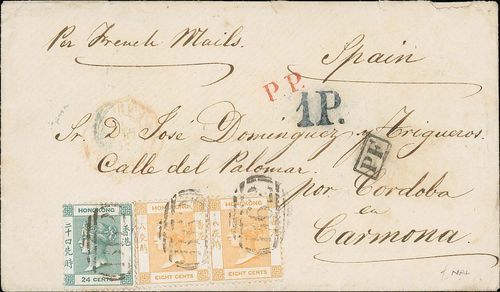 Per French Mails.
Spain
P.P.
1P.
Sr. D. José Dominguez y Trigueros.
Calle del Palomar.
PF
por Cordoba
en
Carmona.
HONGKONG
香港
二十四先時
24 CENTS
HONGKONG
EIGHT CENTS
HONGKONG
EIGHT CENTS
B62
B62